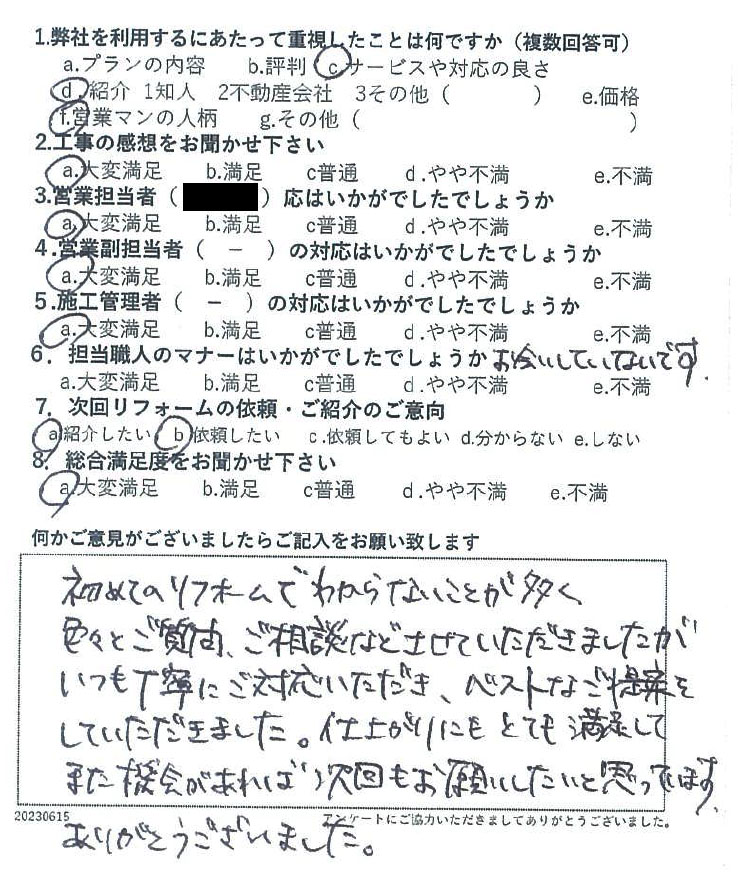 1.弊社を利用するにあたって重視したことは何ですか（複数回答可）
a.プランの内容 b.評判 c.サービスや対応の良さ
d.紹介 1知人 2不動産会社 3その他（ ） e.価格
f.営業マンの人柄 g.その他（ ）
2.工事の感想をお聞かせ下さい
a.大変満足 b.満足 c普通 d.やや不満 e.不満
3.営業担当者（ ）応はいかがでしたでしょうか
a.大変満足 b.満足 c普通 d.やや不満 e.不満
4.営業副担当者（ − ）の対応はいかがでしたでしょうか
a.大変満足 b.満足 c普通 d.やや不満 e.不満
5.施工管理者（ − ）の対応はいかがでしたでしょうか
a.大変満足 b.満足 c普通 d.やや不満 e.不満
6．担当職人のマナーはいかがでしたでしょうか お会いしていないです.
a.大変満足 b.満足 c普通 d.やや不満 e.不満
7．次回リフォームの依頼・ご紹介のご意向
a紹介したい b依頼したい c.依頼してもよい d.分からない e.しない
8．総合満足度をお聞かせ下さい
a.大変満足 b.満足 c普通 d.やや不満 e.不満
何かご意見がございましたらご記入をお願い致します
初めてのリフォームでわからないことが多く
色々とご質問、ご相談などさせていただきましたが
いつも丁寧にご対応いただき、ベストなご提案を
していただきました。仕上がりにもとても満足して
また機会があれば次回もお願いしたいと思っています.
ありがとうございました。
20230615 アンケートにご協力いただきましてありがとうございました。